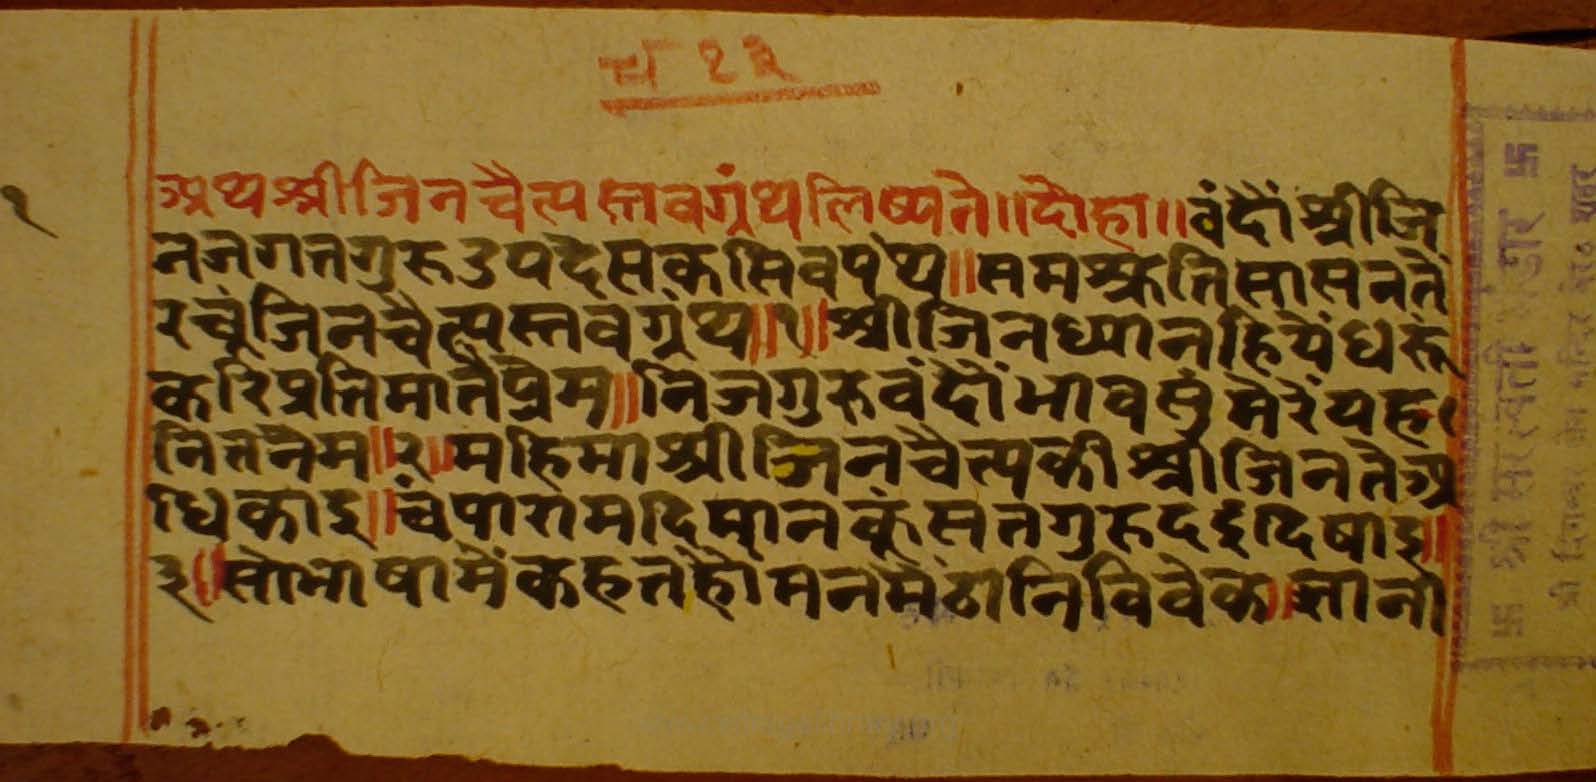 १३
१
अथश्रीजिनचैत्यस्तवग्रंथलिष्यते॥दोहा॥वंदौंश्रीजि
नजगतगुरूउपदेसकसिवपंथ॥समऋतिसासनतैं
रचूंजिनचैत्यस्तवग्रंथ॥१॥श्रीजिनध्यानहियेंधरूं
करिप्रतिमातैंप्रेम॥निजगुरुवंदौंभावसुंमेरैंयह
नितनैम॥२॥महिमाश्रीजिनचैत्यकीश्रीजिनतेंअ
धिकाइ॥चंपारामदिमानकूंसतगुरूदइदिषाइ॥
३॥सोभाषामैंकहतहौंमनमेंठानिविवेक॥ज्ञानी
श्री सरस्वती भंडार